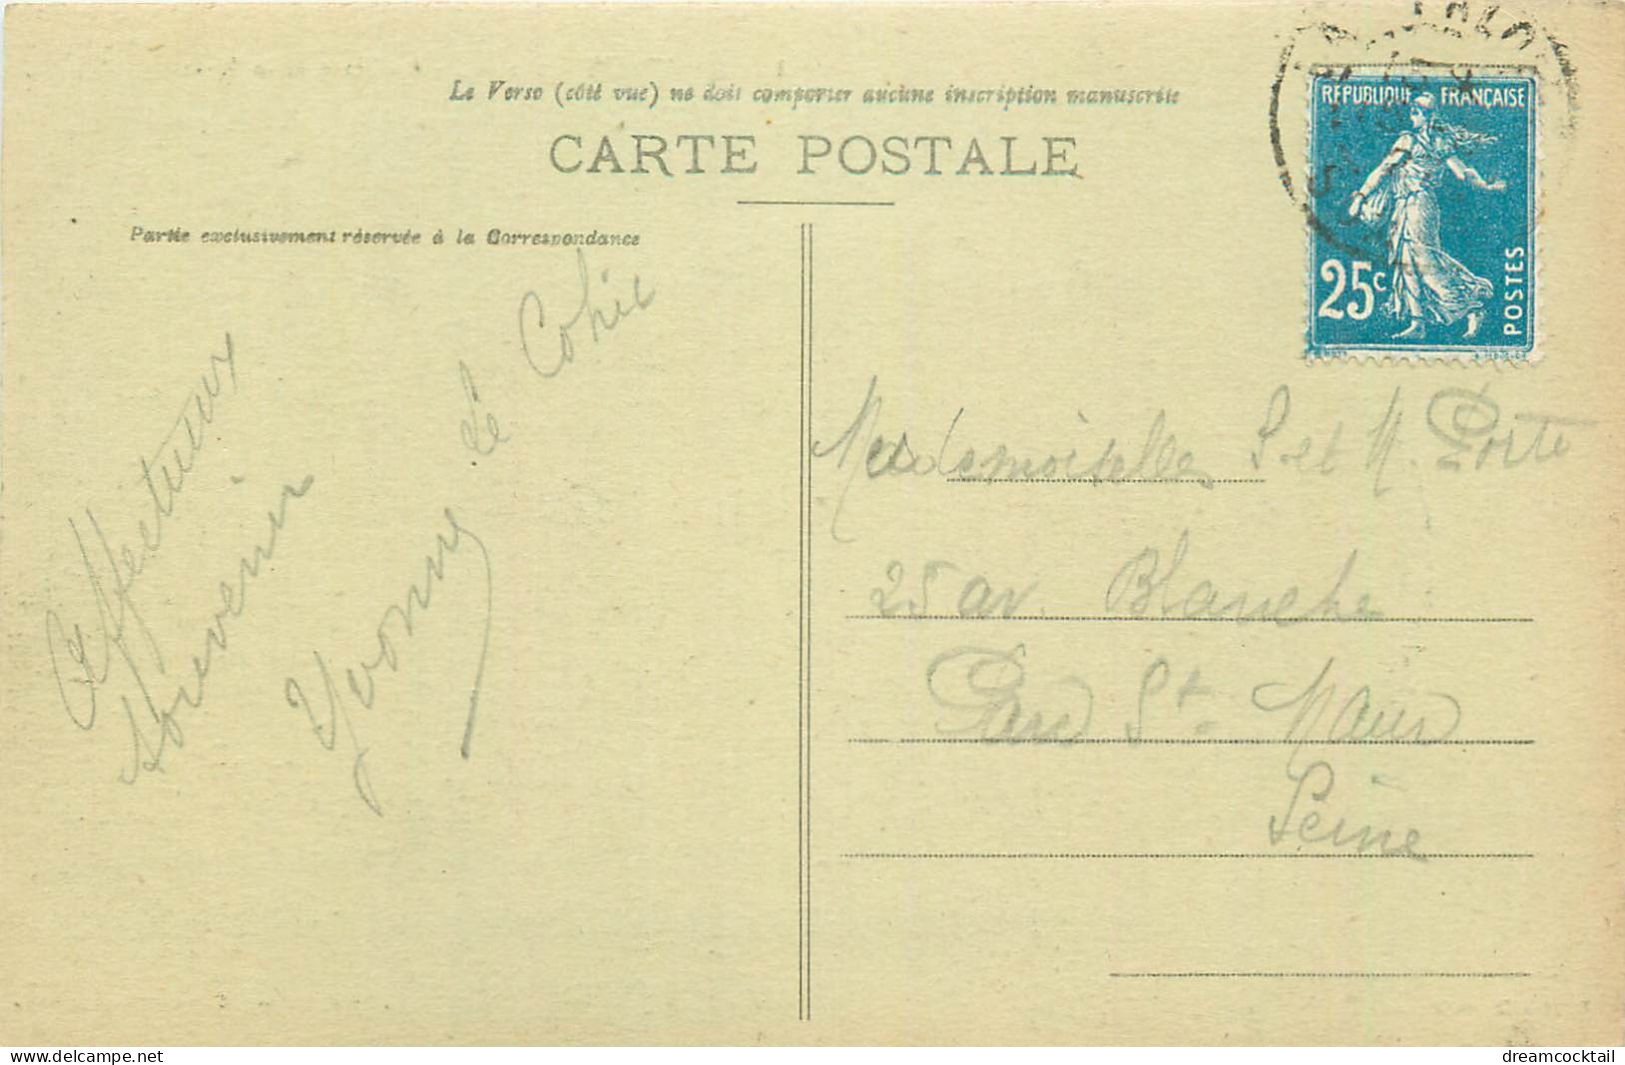 Le Verso (côté vue) ne doit comporter aucune inscription manuscrite
CARTE POSTALE
Partie exclusivement réservée à la Correspondance
RÉPUBLIQUE FRANÇAISE
25c
POSTES
Affectueux
souvenir
Yvonne Le Cohic
Mesdemoiselles S et M. Porte
25 av. Blanche
Parc St. Maur
Seine
www.delcampe.net
dreamcocktail